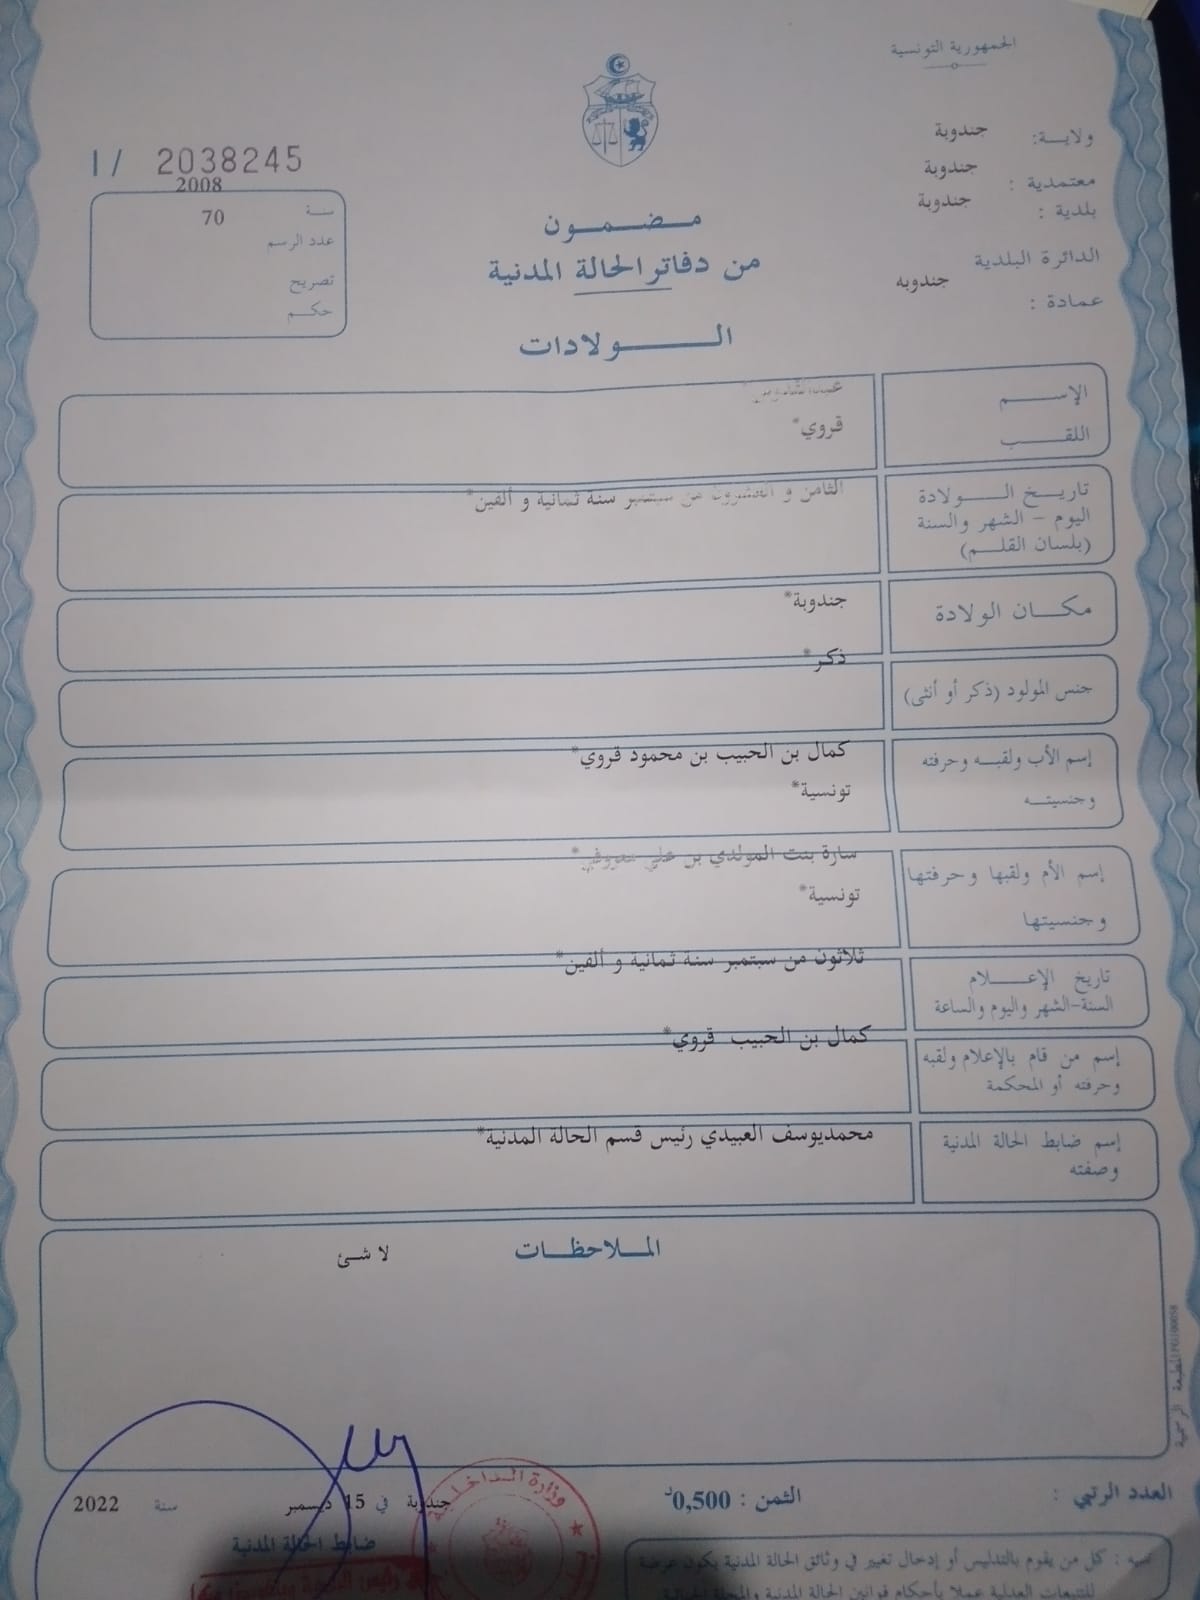 الجمهورية التونسية
ولاية: جندوبة
معتمدية : جندوبة
بلدية : جندوبة
الدائرة البلدية
عمادة : جندوبه
I/ 2038245
سنة 2008
عدد الرسم 70
تصريح
حكم
مضمون
من دفاتر الحالة المدنية
الولادات
الإسم
اللقب قروي*
تاريخ الولادة
اليوم - الشهر والسنة
(بلسان القلم)
الثامن و العشرون من سبتمبر سنة ثمانية و ألفين*
مكان الولادة جندوبة*
جنس المولود (ذكر أو أنثى) ذكر*
إسم الأب ولقبه وحرفته
وجنسيته
كمال بن الحبيب بن محمود قروي*
تونسية*
إسم الأم ولقبها وحرفتها
وجنسيتها
سارة بنت المولدي بن علي
تونسية*
تاريخ الإعلام
السنة-الشهر واليوم والساعة
ثلاثون من سبتمبر سنة ثمانية و ألفين*
إسم من قام بالإعلام ولقبه
وحرفته أو المحكمة
كمال بن الحبيب قروي*
إسم ضابط الحالة المدنية
وصفته
محمديوسف العبيدي رئيس قسم الحالة المدنية*
الملاحظات
لا شئ
العدد الرتبي :
الثمن : 0,500د
جندوبة في 15 ديسمبر سنة 2022
ضابط الحالة المدنية
وزارة الداخلية
تنبيه : كل من يقوم بالتدليس أو إدخال تغيير في وثائق الحالة المدنية يكون عرضة
للتتبعات العدلية عملا بأحكام قوانين الحالة المدنية والمجلة الجنائية
المطبعة الرسمية